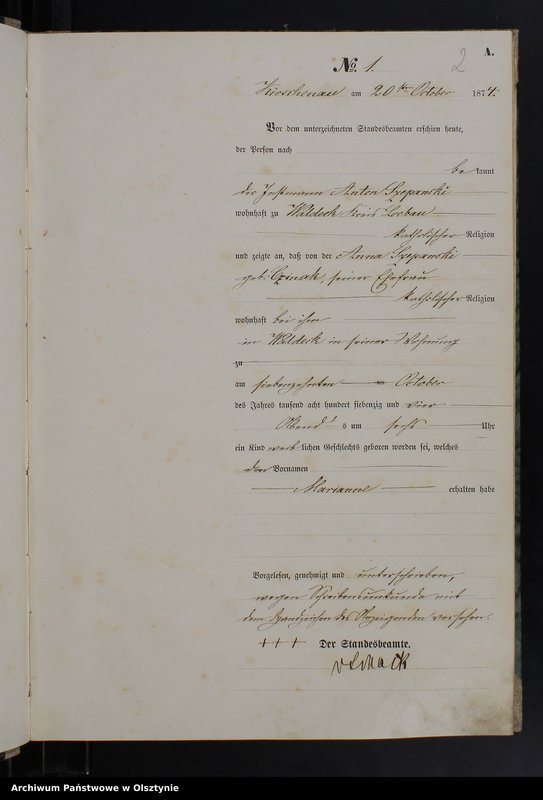 A.
2
No. 1.
Kirschenau am 20ten October 1874.
Vor dem unterzeichneten Standesbeamten erschien heute,
der Person nach
bekannt
der Instmann Anton Szepanski
wohnhaft zu Waldeck Kreis Loebau
katholischer Religion
und zeigte an, daß von der Anna Szepanski
geb. seiner Ehefrau
katholischer Religion
wohnhaft bei ihm
in Waldeck in seiner Wohnung
zu
am siebenzehnten October
des Jahres tausend acht hundert siebenzig und vier
Abends um sechs Uhr
ein Kind weiblichen Geschlechts geboren worden sei, welches
den Vornamen
Marianne erhalten habe
Vorgelesen, genehmigt und unterschrieben,
wegen Schreibensunkunde mit
dem Handzeichen des Anzeigenden versehen.
+++ Der Standesbeamte.
Archiwum Państwowe w Olsztynie